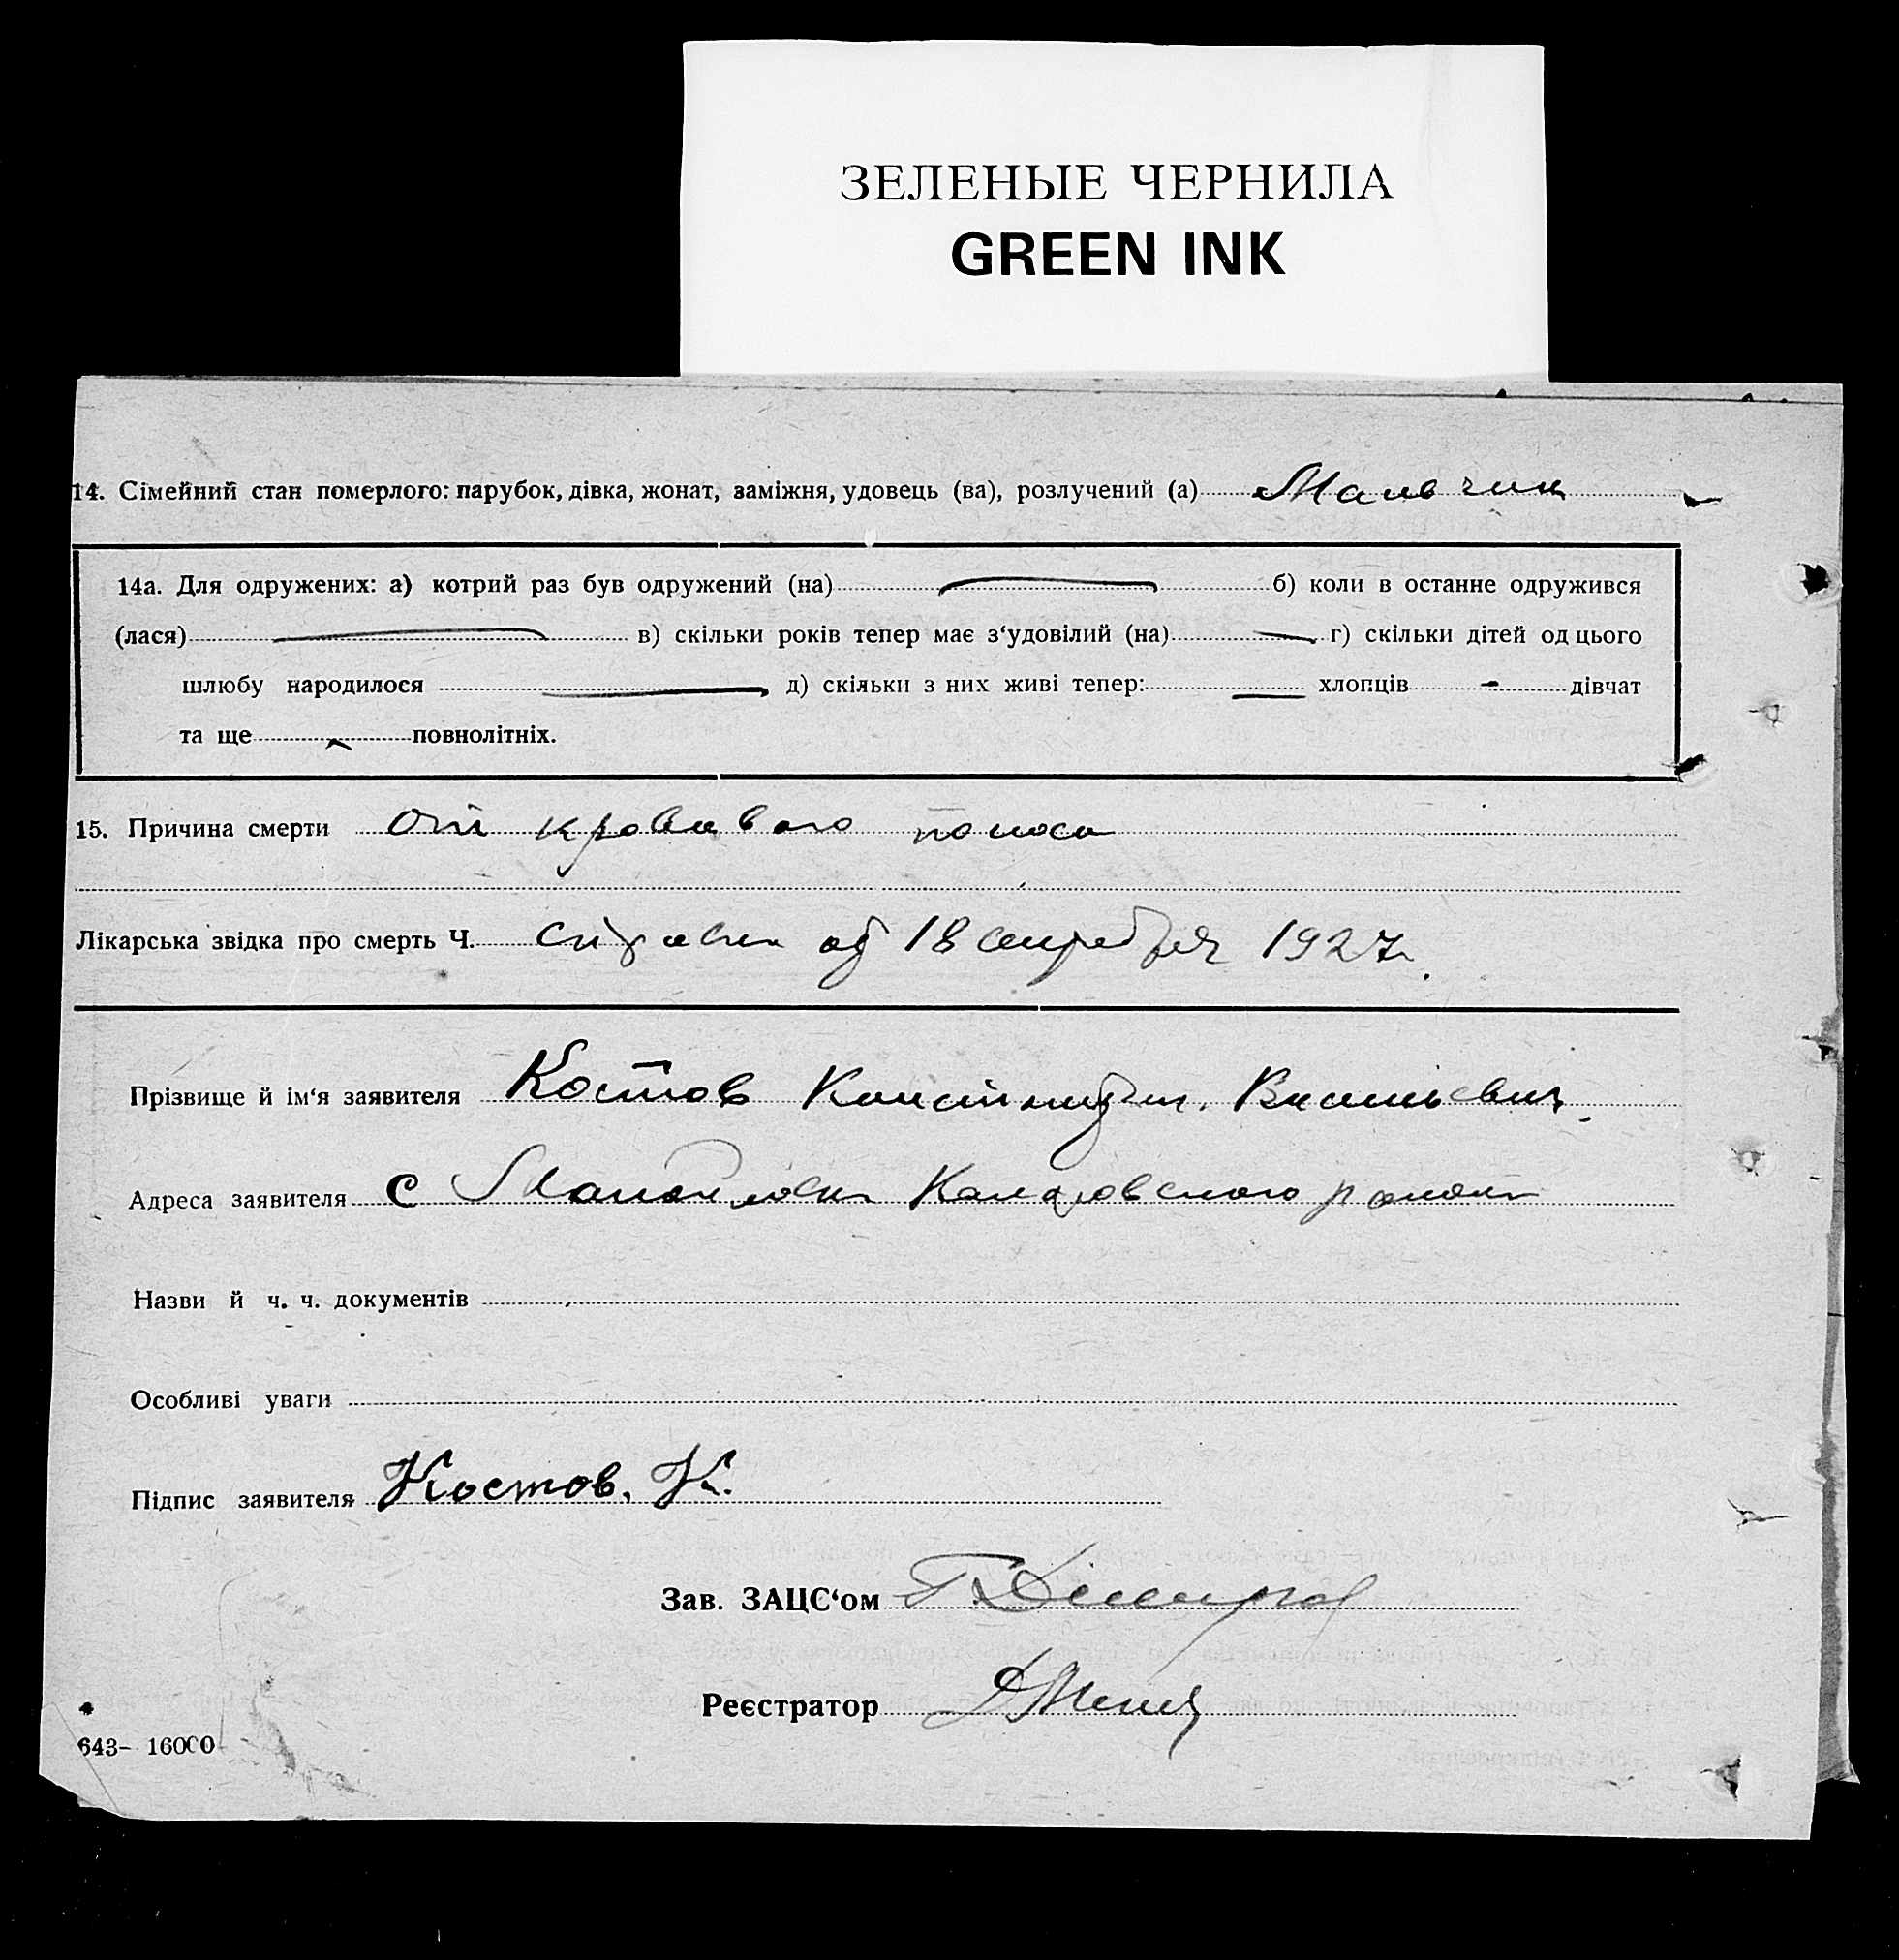 ЗЕЛЕНЫЕ ЧЕРНИЛА
GREEN INK
14. Сімейний стан померлого: парубок, дівка, жонат, заміжня, удовець (ва), розлучений (а) Мальчик
14а. Для одружених: а) котрий раз був одружений (на) б) коли в останне одружився
(лася) в) скільки років тепер має з‘удовілий (на) г) скільки дітей од цього
шлюбу народилося д) скільки з них живі тепер: хлопців - дівчат
та ще повнолітніх.
15. Причина смерти От кровавого поноса
Лікарська звідка про смерть Ч. справка од 18 сентября 1927
Прізвище й ім‘я заявителя Костов Константин Васильевич
Адреса заявителя с Коларовского района
Назви й ч. ч. документів
Особливі уваги
Підпис заявителя Костов. К.
Зав. ЗАЦС‘ом
Реєстратор
643– 16000